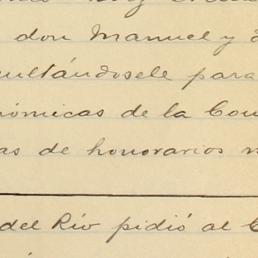 don Manuel y d
ultándosele para
ómicas de la Com
as de honorarios n
del Río pidió al C